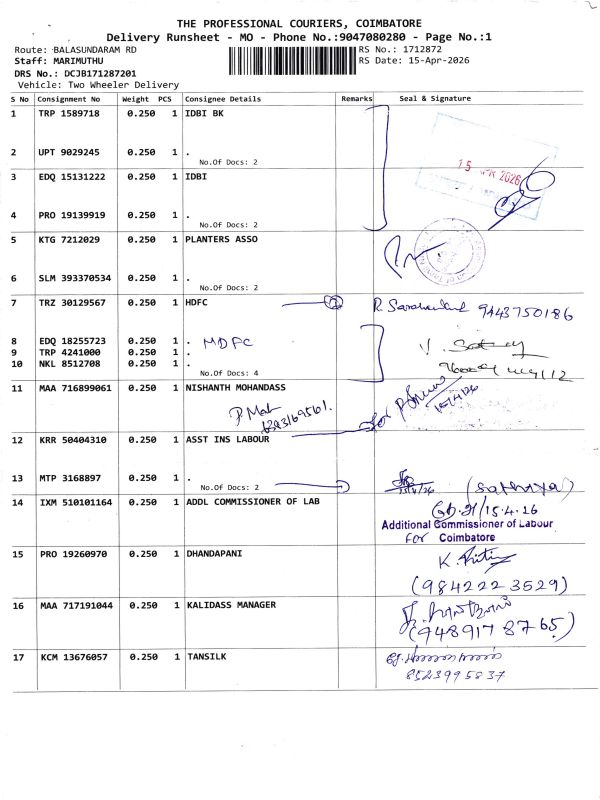 THE PROFESSIONAL COURIERS, COIMBATORE
Delivery Runsheet - MO - Phone No.:9047080280 - Page No.:1
Route: BALASUNDARAM RD RS No.: 1712872
Staff: MARIMUTHU RS Date: 15-Apr-2026
DRS No.: DCJB171287201
Vehicle: Two Wheeler Delivery
S No Consignment No Weight PCS Consignee Details Remarks Seal & Signature
1 TRP 1589718 0.250 1 IDBI BK
2 UPT 9029245 0.250 1 .
No.Of Docs: 2
15 APR 2026
3 EDQ 15131222 0.250 1 IDBI
4 PRO 19139919 0.250 1 .
No.Of Docs: 2
5 KTG 7212029 0.250 1 PLANTERS ASSO
6 SLM 393370534 0.250 1 .
No.Of Docs: 2
7 TRZ 30129567 0.250 1 HDFC 9443750186
8 EDQ 18255723 0.250 1 . HDFC
9 TRP 4241000 0.250 1 .
10 NKL 8512708 0.250 1 .
No.Of Docs: 4
11 MAA 716899061 0.250 1 NISHANTH MOHANDASS
for
15/4/26
12 KRR 50404310 0.250 1 ASST INS LABOUR
13 MTP 3168897 0.250 1 .
No.Of Docs: 2 (Sathiya)
14 IXM 510101164 0.250 1 ADDL COMMISSIONER OF LAB
15.4.26
Additional Commissioner of Labour
For Coimbatore
15 PRO 19260970 0.250 1 DHANDAPANI
(984222 3529)
16 MAA 717191044 0.250 1 KALIDASS MANAGER
(948917 8765)
17 KCM 13676057 0.250 1 TANSILK
8523995837